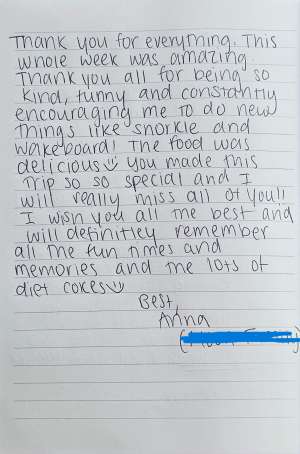 Thank you for everything. This
whole week was amazing.
Thank you all for being so
kind, funny and constantly
encouraging me to do new
things like snorkle and
wakeboard! The food was
delicious☺ you made this
trip so so special and I
will really miss all of you!!
I wish you all the best and
will definitley remember
all the fun times and
memories and the lots of
diet cokes☺
Best,
Anna